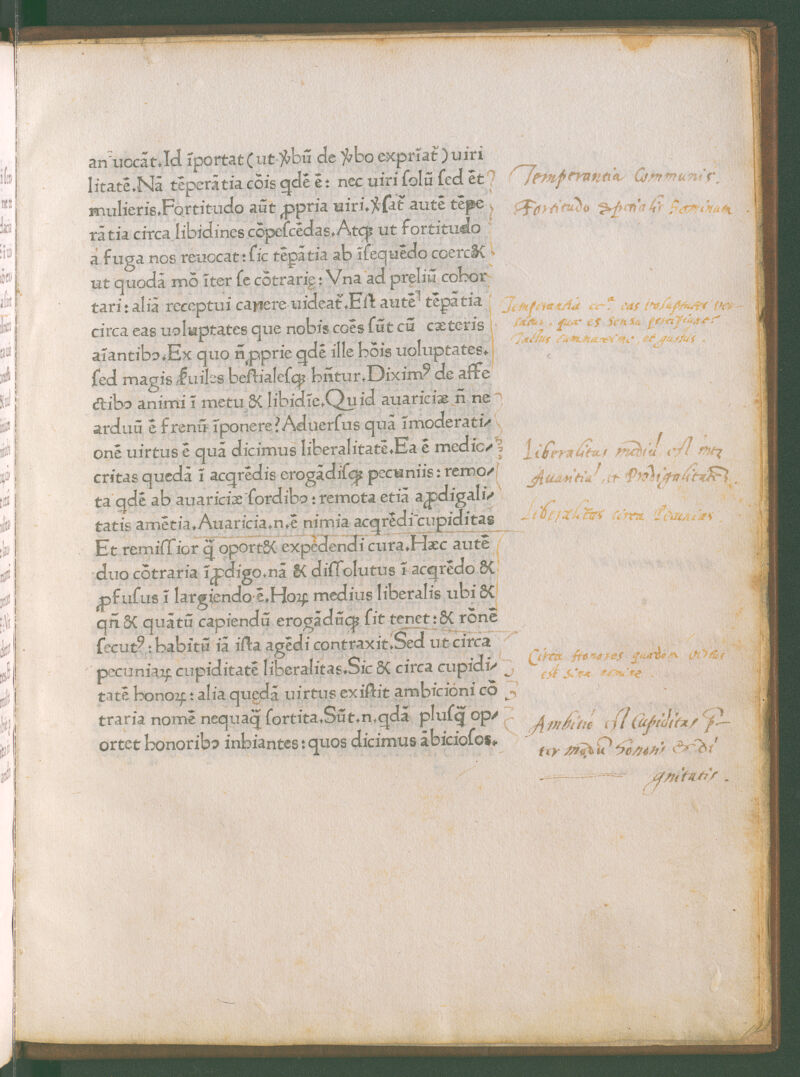 an uocāt. Id īportat (ut ꝟbū de ꝟbo exprīat̄) uiri
litatē. Nā tēperātia cōis qdē ē: nec uiri ſolū ſed ēt
mulieris. Fortitudo aūt ꝓpria uiri. ꝟſat̄ autē tēpe
rātia circa libidines cōpeſcēdas. Atqꝫ ut fortitudo
a fuga nos reuocat: ſic tēpātia ab īſequēdo coerc&
ut quodā mō īter ſe cōtrarię: Vna ad preliū cohor
tari: aliā receptui canere uideat̄. Eſt autē tēpātia
circa eas uoluptates que nobis coēs ſūt cū cæteris
aīantibꝰ. Ex quo n̄ ꝓprie qdē ille hōis uoluptates.
ſed magis ſuiles beſtialeſqꝫ hn̄tur. Diximꝰ de affe
ctibꝰ animi ī metu & libidīe. Quid auariciæ n̄ ne
arduū ē frenū īponere? Aduerſus quā īmoderati⸗
onē uirtus ē quā dicimus liberalitatē. Ea ē medio⸗
critas quedā ī acqrēdis erogādiſqꝫ pecuniis: remo⸗
ta qdē ab auariciæ ſordibꝰ: remota etiā a ꝓdigali⸗
tatis amētia. Auaricia .n. ē nimia acqrēdi cupiditas
Et remiſſior q̄ oport& expēdendi cura. Hæc autē
duo cōtraria ī ꝓdigo. nā & diſſolutus ī acqrēdo &
ꝓfuſus ī largiendo ē. Hoꝝ medius liberalis ubi &
qn̄ & quātū capiendū erogādūqꝫ ſit tenet: & rōnē
ſecutꝰ: habitū iā iſta agēdi contraxit. Sed ut circa
pecuniaꝝ cupiditatē liberalitas. Sic & circa cupidi⸗
tatē honoꝝ: alia quedā uirtus exiſtit ambicioni cō
traria nomē nequaq̄ ſortita. Sūt .n. qdā pluſq̄ op⸗
ortet honoribꝰ inhiantes: quos dicimus ābicioſos.
Temperantia Communis.
Fortitudo
Temperantia eas
Tactus et gustus.
Liberalitas mediū est inter
Avaritiā, et Prodigalitatem.
Liberalitas circa Pecunias
Circa honores quædam virtus
est sine nomine
Ambitio est Cupiditas
honoris et di
gnitatis.